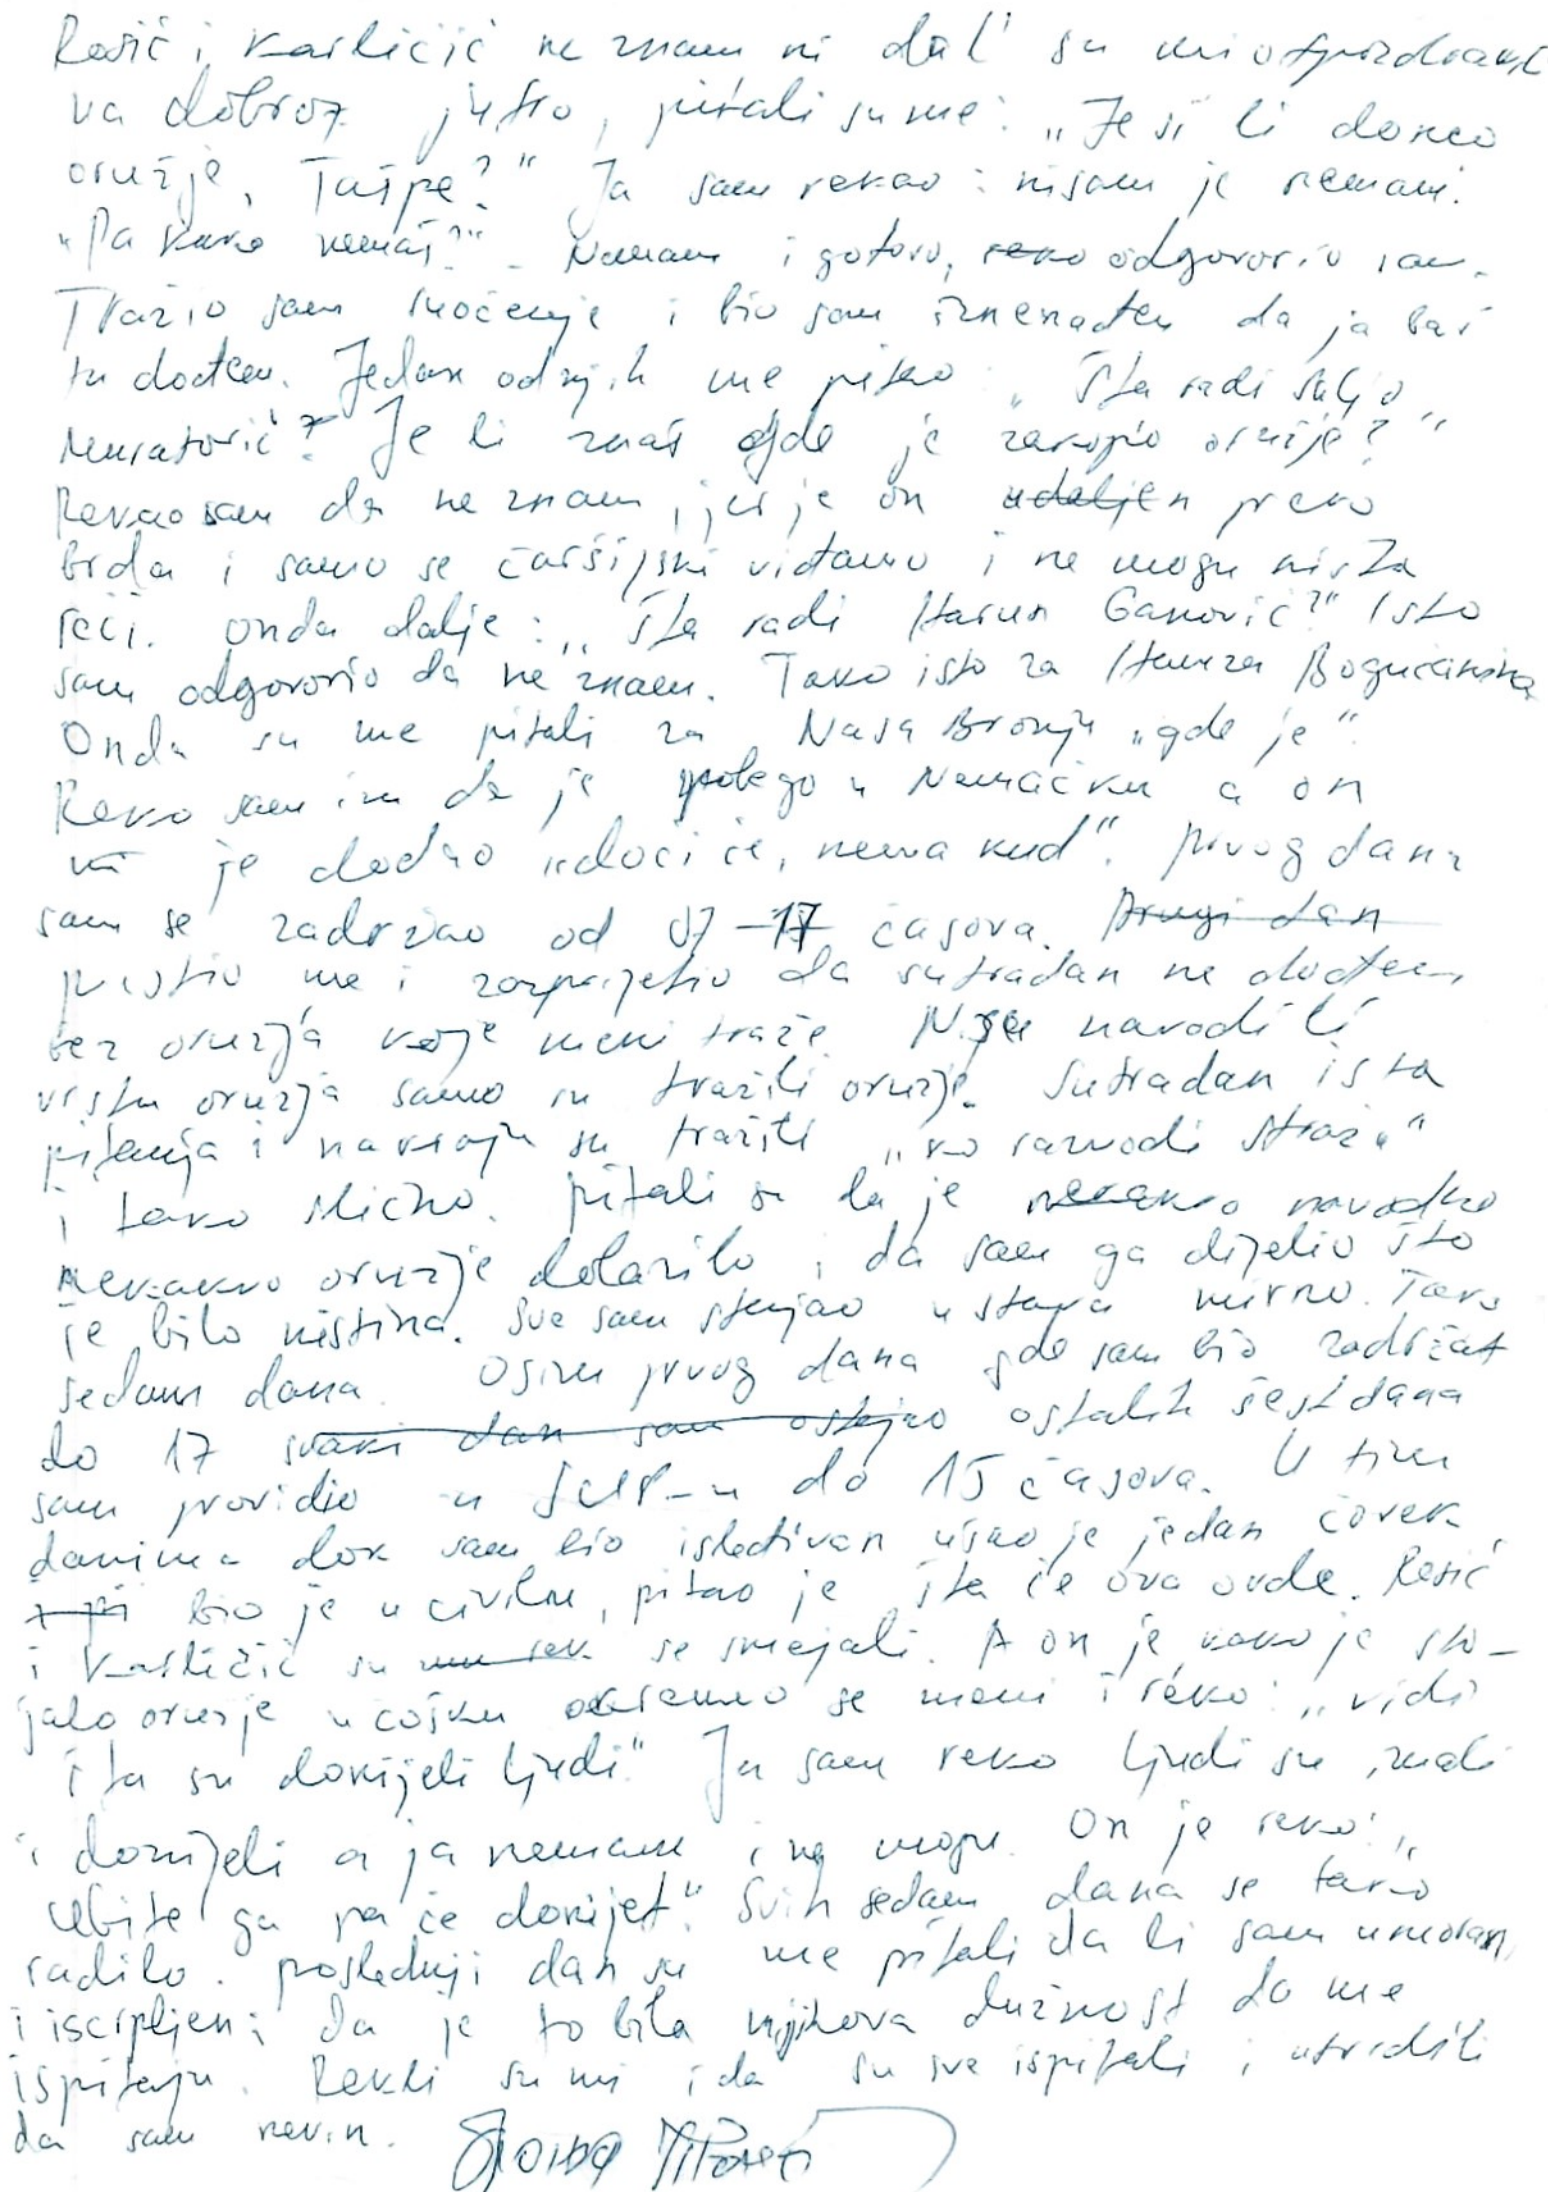 Rosić i Karličić ne znam ni dal' su mi otpozdravili
na dobro jutro, pitali su me: „Jesi li doneo
oružje, Tašpe?" Ja sam rekao: nisam je nemam.
„Pa kako nemaš?" - Nemam i gotovo, reko odgovorio sam.
Tražio sam suočenje i bio sam iznenađen da ja baš
tu dođem. Jedan od njih me pitao: „Šta radi Saljo
Muratović? Je li znaš gde je zakopo oružje?"
Rekao sam da ne znam, jer je on udaljen preko
brda i samo se čaršijski viđamo i ne mogu ništa
reći. Onda dalje: „Šta radi Harun Ganović?" Isto
sam odgovorio da ne znam. Tako isto za Hamza Bogućanina
Onda su me pitali za Nasa Bronju „gde je".
Reko sam im da je pobego u Nemačku a on
mi je dodao „doći će, nema kud". Prvog dana
sam se zadržao od 07-17 časova. Drugi dan
pustio me i zaprijetio da sutradan ne dođem
bez oružja koje meni traže. Nisu navodili
vrstu oružja samo su tražili oružje. Sutradan ista
pitanja i na kraju su tražili „ko razvodi stražu"
i tako slično. Pitali su da je nekakvo navodno
nekakvo oružje dolazilo i da sam ga dijelio što
je bilo neistina. Sve sam stojao u stavu mirno. Tako
sedam dana. Osim prvog dana gde sam bio zadržat
do 17 svaki dan sam ostajao ostalih šest dana
sam provideo u SUP-u do 15 časova. U tim
danima dok sam bio isleđivan ušao je jedan čovek
i pi bio je u civilu, pitao je šta će ova ovde. Rosić
i Karličić su mu rek se smejali. A on je kako je sto-
jalo oružje u ćošku okrenuo se meni i reko: „vidi
šta su donijeli ljudi." Ja sam reko ljudi su imali
i donijeli a ja nemam i ne mogu. On je reko: „
Ubite ga pa će donijet". Svih sedam dana se tako
radilo. Poslednji dan su me pitali da li sam umoran,
i iscrpljen; da je to bila njihova dužnost da me
ispitaju. Rekli su mi i da su sve ispitali i utvrdili
da sam nevin.